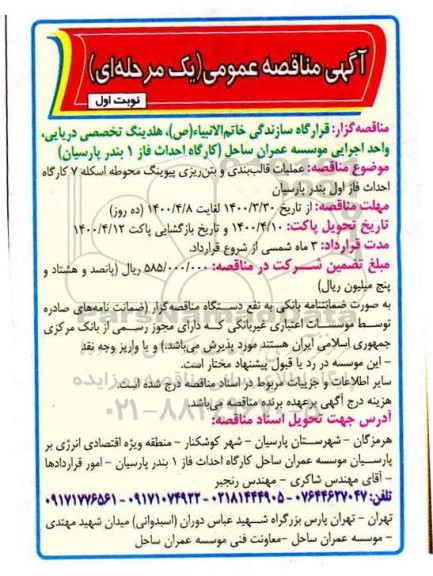 آگهی مناقصه عمومی(یک مرحله‌ای)
نوبت اول
مناقصه‌گزار: قرارگاه سازندگی خاتم‌الانبیاء(ص)، هلدینگ تخصصی دریایی،
واحد اجرایی موسسه عمران ساحل (کارگاه احداث فاز ۱ بندر پارسیان)
موضوع مناقصه: عملیات قالب‌بندی و بتن‌ریزی پیوینگ محوطه اسکله ۷ کارگاه
احداث فاز اول بندر پارسیان
مهلت مناقصه: از تاریخ ۱۴۰۰/۳/۳۰ لغایت ۱۴۰۰/۴/۸ (ده روز)
تاریخ تحویل پاکت: ۱۴۰۰/۴/۱۰ و تاریخ بازگشایی پاکت ۱۴۰۰/۴/۱۲
مدت قرارداد: ۳ ماه شمسی از شروع قرارداد.
مبلغ تضمین شرکت در مناقصه: ۵۸۵/۰۰۰/۰۰۰ ریال (پانصد و هشتاد و
پنج میلیون ریال)
به صورت ضمانتنامه بانکی به نفع دستگاه مناقصه‌گزار (ضمانت نامه‌های صادره
توسط موسسات اعتباری غیربانکی که دارای مجوز رسمی از بانک مرکزی
جمهوری اسلامی ایران هستند مورد پذیرش می‌باشد.) و یا واریز وجه نقد
- این موسسه در رد یا قبول پیشنهاد مختار است.
سایر اطلاعات و جزییات مربوط در اسناد مناقصه درج شده است.
هزینه درج آگهی برعهده برنده مناقصه می‌باشد.
آدرس جهت تحویل اسناد مناقصه:
هرمزگان - شهرستان پارسیان - شهر کوشکنار - منطقه ویژه اقتصادی انرژی بر
پارسیان موسسه عمران ساحل کارگاه احداث فاز ۱ بندر پارسیان - امور قراردادها
- آقای مهندس شاکری - مهندس رنجبر
تلفن: ۰۷۶۴۴۶۲۷۰۴۷ - ۰۲۱۸۱۴۴۴۹۰۵ - ۰۹۱۷۱۰۷۴۹۲۳ - ۰۹۱۷۱۷۷۶۵۶۱
تهران - تهران پارس بزرگراه شهید عباس دوران (اسبدوانی) میدان شهید مهتدی
- موسسه عمران ساحل -معاونت فنی موسسه عمران ساحل